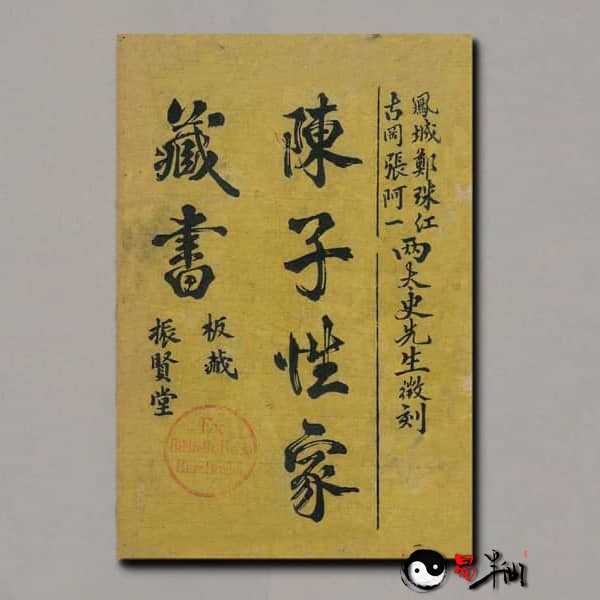 鳳城鄭珠江
古岡張阿一
兩太史先生徵刻
陳子性家
藏書
板藏
振賢堂
Ex
易半仙